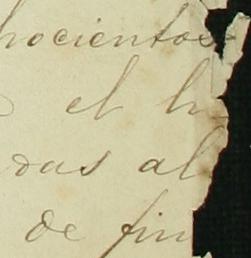 hocientos
el h
das al
de fin